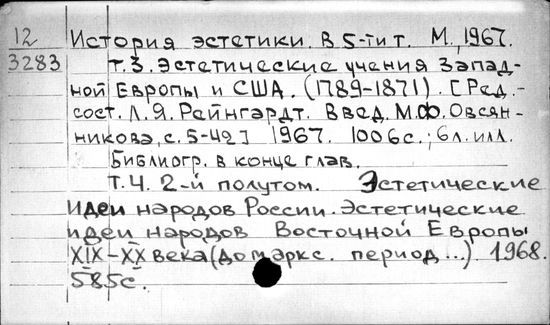 12
3283
История эстетики. В 5-ти т. М., 1967.
Т.3. Эстетические учения Запад-
ной Европы и США. (1789-1871). [Ред.-
сост. Л.Я. Рейнгардт. Введ. М.Ф. Овсян-
никова, с. 5-42] 1967. 1006 с.; 6 л. илл.
Библиогр. в конце глав.
Т.4. 2-й полутом. Эстетические
идеи народов России. Эстетические
идеи народов Восточной Европы
XIX-XX века (домаркс. период...) 1968.
585 с.